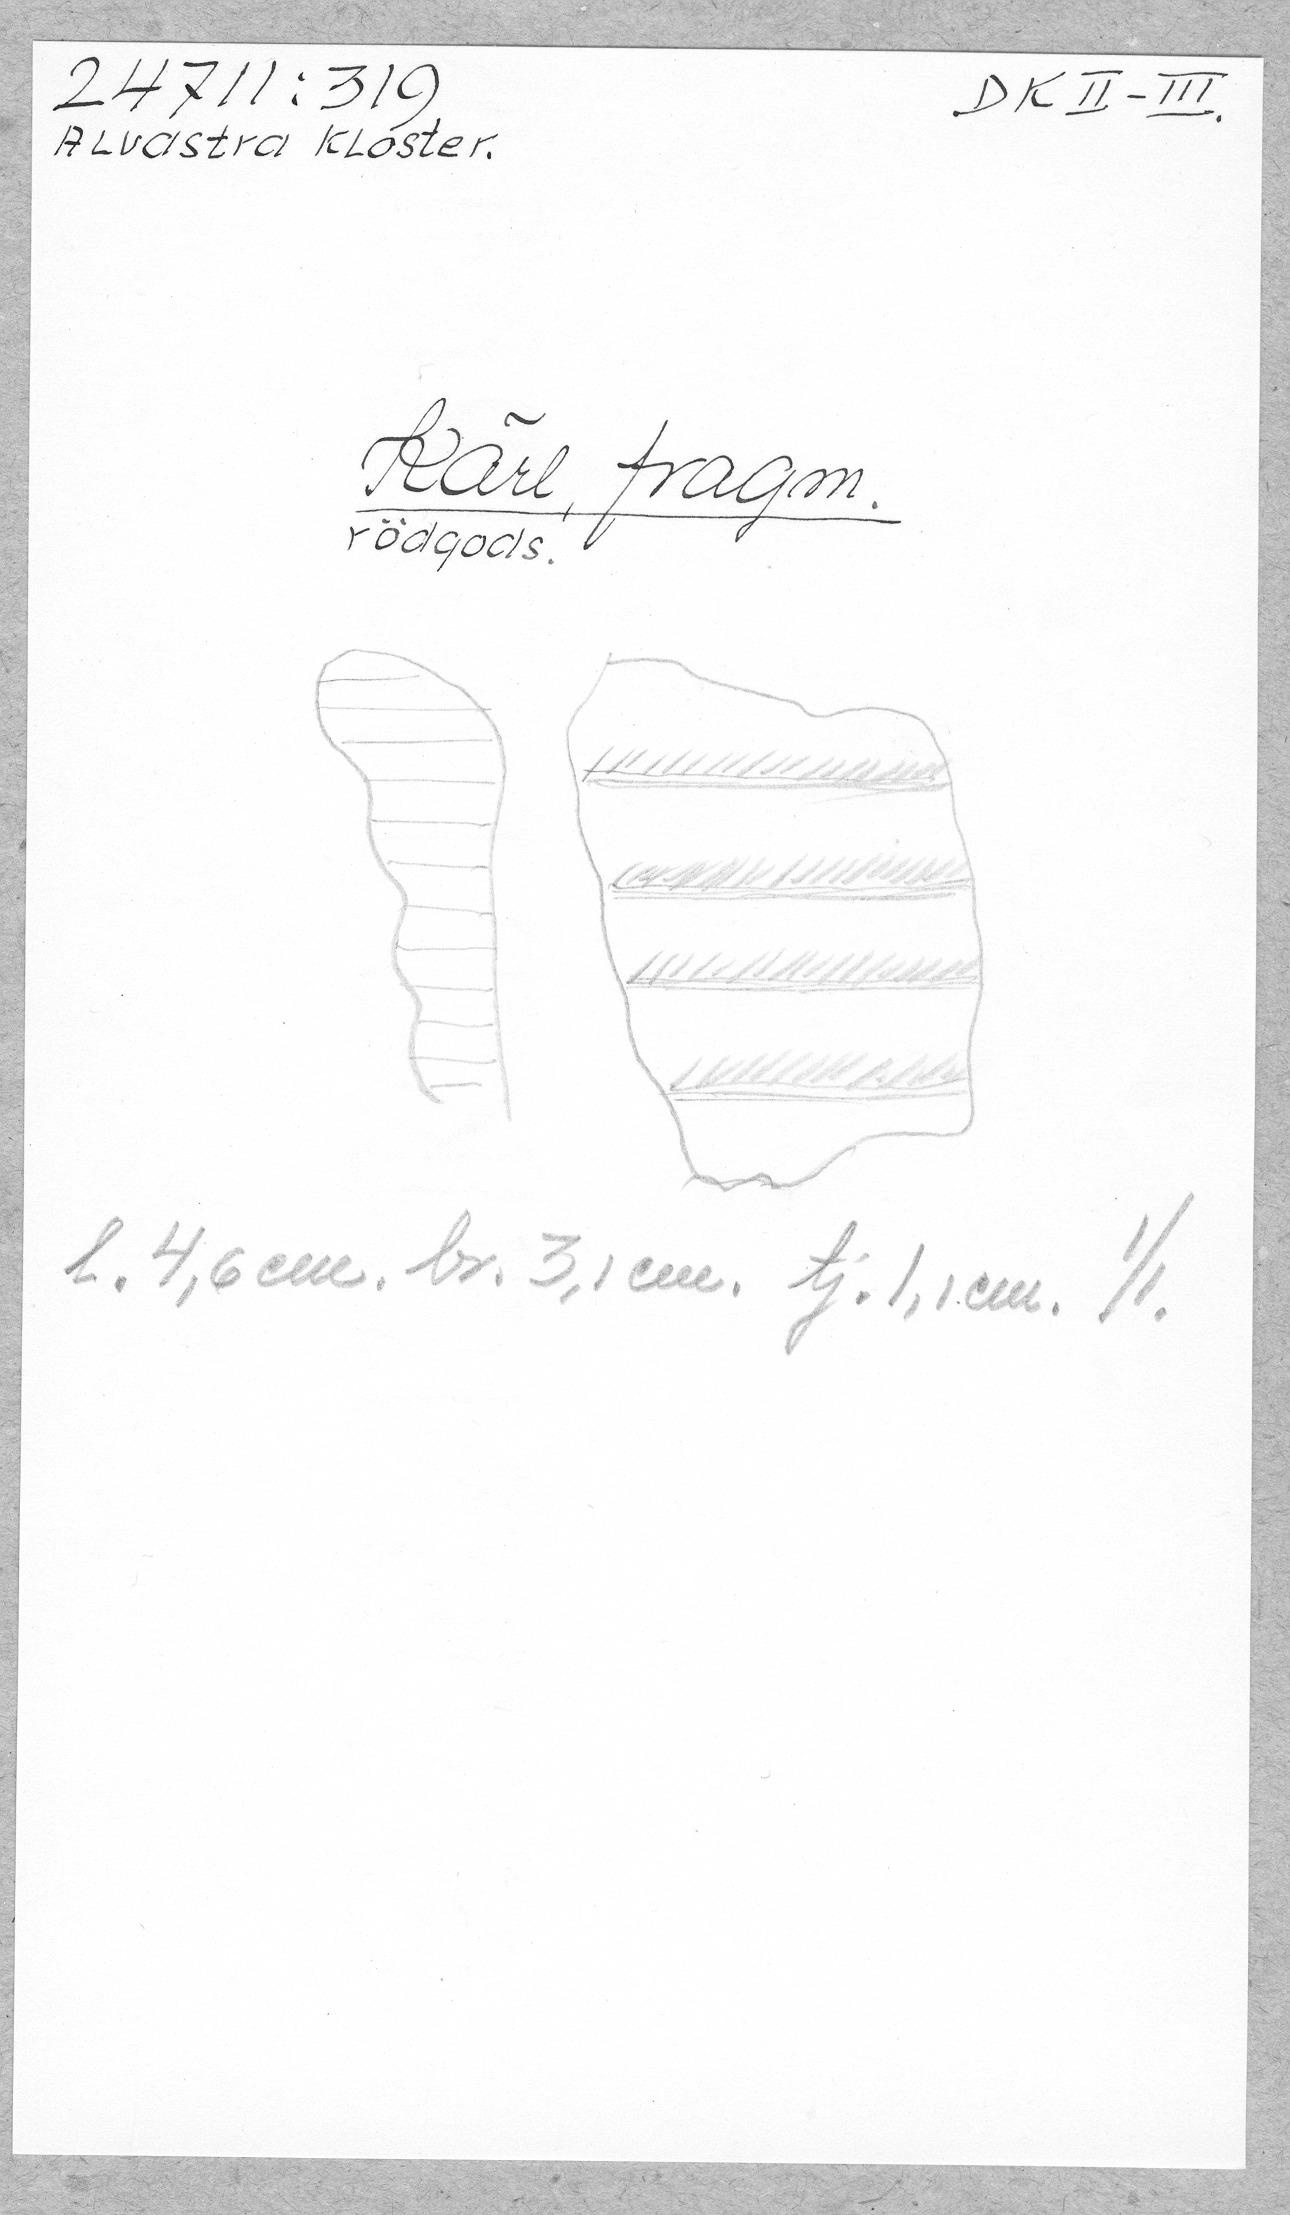 24711:319
DK II-III.
Alvastra Kloster.
Kärl, fragm.
rödgods.
l. 4,6 cm. br. 3,1 cm. tj. 1,1 cm. 1/1.